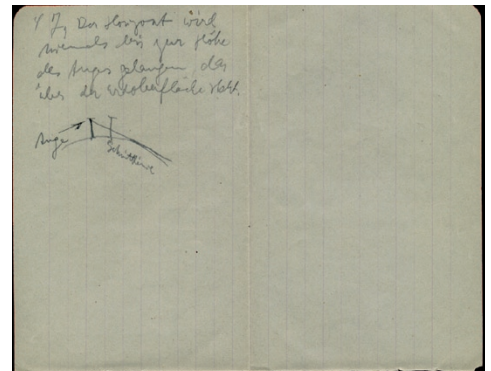 Der Horizont wird
niemals bis zur Höhe
des Auges gelangen, das
über der Erdoberfläche steht.
Auge